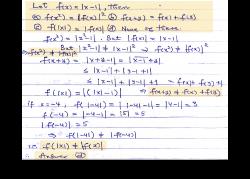 Let f(x) = |x-1|, then
(a) f(x²) = |f(x)|² (b) f(x+y) = f(x) + f(y)
(c) f(|x|) = |f(x)| (d) None of these
f(x²) = |x²-1|. But |f(x)| = |x-1|
But |x²-1| ≠ |x-1|² ⇒ f(x²) ≠ |f(x)|²
⇒ f(x²) ≠ |f(x)|²
f(x+y) = |x+y-1| =
≤ |x-1| + |y-1+1|
≤ |x-1| + |y-1| + 1 f(x) + f(y) + 1
f(|x|) = (|x|-1) ⇒ f(x+y) ≠ f(x) + f(y)
if x=-4, f(|-4|) = ||-4|-1| = |4-1| = 3
f(-4) = |-4-1| = |5| = 5
|f(-4)| = 5
⇒ f(|-4|) ≠ |f(-4)|
f(|x|) ≠ |f(x)|
Answer (d)